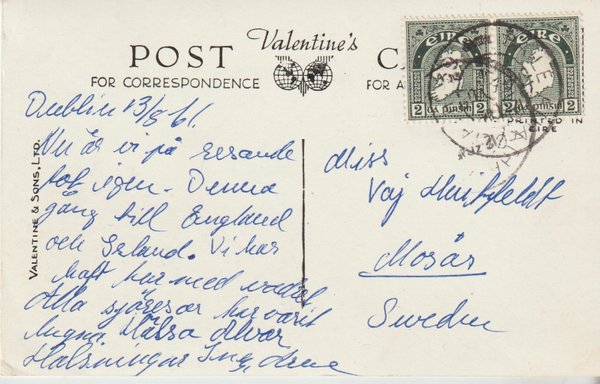 POST Valentine's CA
FOR CORRESPONDENCE FOR A
VALENTINE & SONS, LTD.
PRINTED IN
EIRE
ÉIRE ÉIRE
2 2
Dublin 13/8 61.
Nu är vi på resande
fot igen. Denna
gång till England
och Irland. Vi har
haft tur med vädret
Alla sjöresor har varit
lugna. Hälsa Alvar
Hälsningar Ing, Arne
Miss
Vaj Huitfeldt
Mosås
Sweden